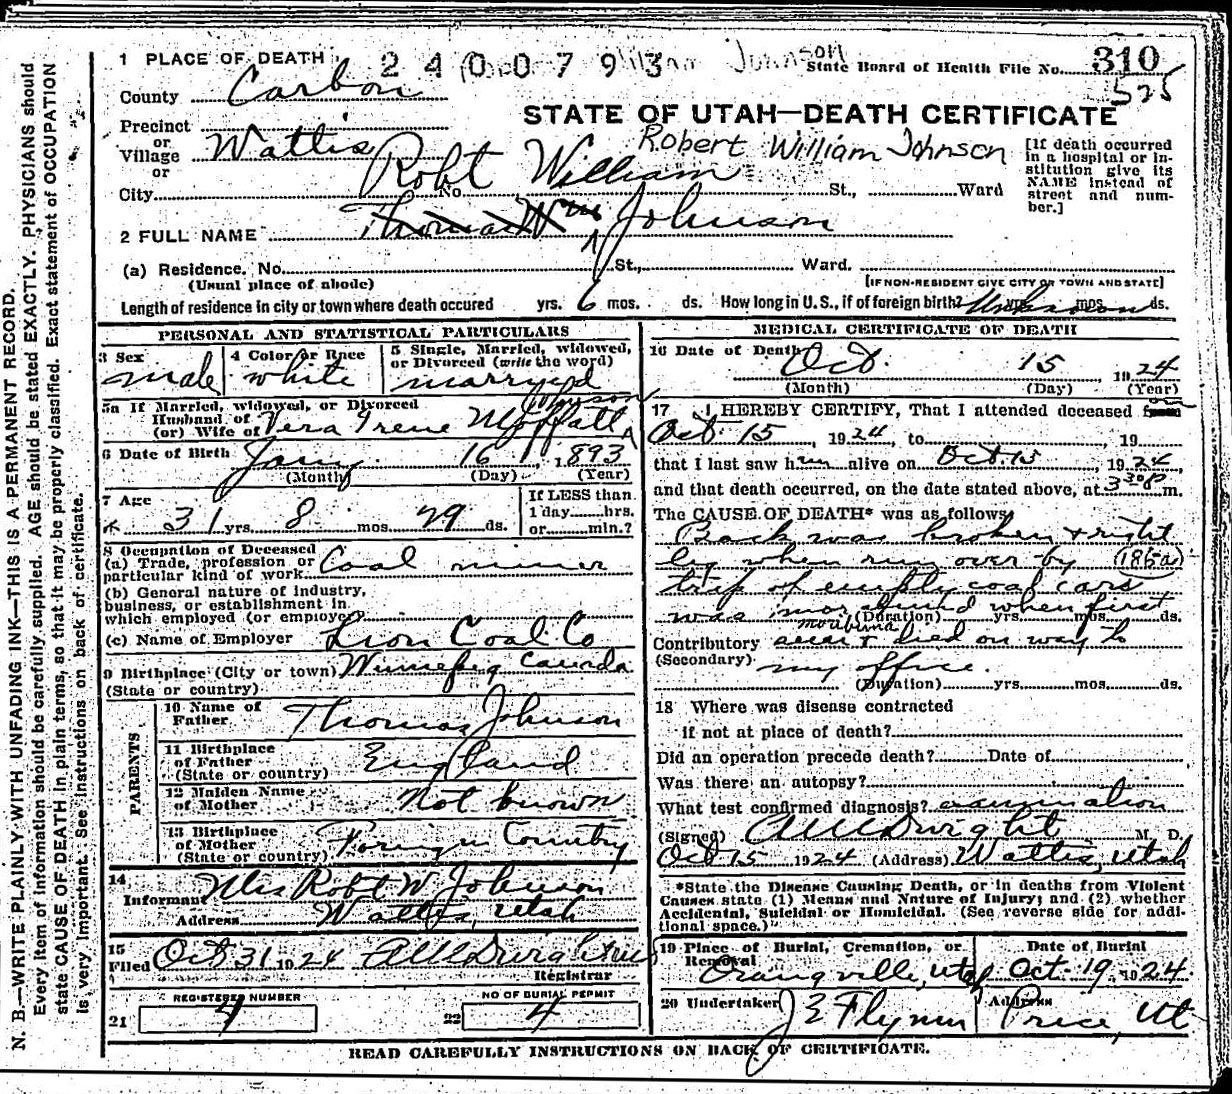 N. B.—WRITE PLAINLY WITH UNFADING INK—THIS IS A PERMANENT RECORD.
Every item of information should be carefully supplied. AGE should be stated EXACTLY. PHYSICIANS should
state CAUSE OF DEATH in plain terms, so that it may be properly classified. Exact statement of OCCUPATION
is very important. See instructions on back of certificate.
1 PLACE OF DEATH 2400793 Johnson State Board of Health File No. 310
525
County Carbon
STATE OF UTAH—DEATH CERTIFICATE
Precinct
or
Village Wattis
or
Robert William Johnson
[If death occurred in a hospital or institution give its NAME instead of street and number.]
City No. St., Ward
Robt William
2 FULL NAME Thomas Wm Johnson
(a) Residence. No. St., Ward.
(Usual place of abode) [IF NON-RESIDENT GIVE CITY OR TOWN AND STATE]
Length of residence in city or town where death occured yrs. 6 mos. ds. How long in U.S., if of foreign birth? Unknown yrs. mos. ds.
PERSONAL AND STATISTICAL PARTICULARS
3 Sex male
4 Color or Race white
5 Single, Married, widowed, or Divorced (write the word) married
5a If Married, widowed, or Divorced
Husband of
(or) Wife of Vera Irene Moffatt Johnson
6 Date of Birth Jany. 16, 1893
(Month) (Day) (Year)
7 Age 31 yrs. 8 mos. 29 ds.
If LESS than 1 day hrs. or min.?
8 Occupation of Deceased
(a) Trade, profession or particular kind of work Coal miner
(b) General nature of industry, business, or establishment in which employed (or employer)
(c) Name of Employer Lion Coal Co
9 Birthplace (City or town) Winnepig Canada
(State or country)
PARENTS
10 Name of Father Thomas Johnson
11 Birthplace of Father (State or country) England
12 Maiden Name of Mother Not known
13 Birthplace of Mother (State or country) Foriegn Country
14
Informant Mrs Robt W Johnson
Address Wattis, Utah
15
Filed Oct 31 1924
Registrar
REGISTERED NUMBER
21 4
NO OF BURIAL PERMIT
22 4
MEDICAL CERTIFICATE OF DEATH
16 Date of Death Oct. 15 1924
(Month) (Day) (Year)
17 I HEREBY CERTIFY, That I attended deceased from on
Oct. 15, 1924, to , 19
that I last saw him alive on Oct. 15, 1924,
and that death occurred, on the date stated above, at 3:30 P m.
The CAUSE OF DEATH* was as follows:
Back was broken & right
leg when run over by (185a)
trip of empty coal cars
was when first
(Duration) yrs. mos. ds.
moribund
Contributory seen & died on way to
(Secondary) my office.
(Duration) yrs. mos. ds.
18 Where was disease contracted
if not at place of death?
Did an operation precede death? Date of
Was there an autopsy?
What test confirmed diagnosis? examination
(Signed) Dwight M. D.
Oct 15 1924 (Address) Wattis, Utah
*State the Disease Causing Death, or in deaths from Violent
Causes state (1) Means and Nature of Injury; and (2) whether
Accidental, Suicidal or Homicidal. (See reverse side for additional space.)
19 Place of Burial, Cremation, or Removal Orangville, Utah
Date of Burial Oct. 19 1924
20 Undertaker J E Flynn
Address Price, Ut
READ CAREFULLY INSTRUCTIONS ON BACK OF CERTIFICATE.